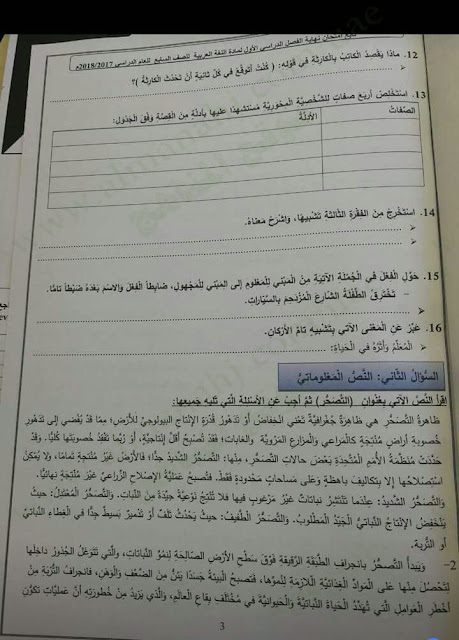 تابع امتحان نهاية الفصل الدراسي الأول لمادة اللغة العربية للصف السابع للعام الدراسي 2018/2017م
12. ماذا يقصد الكاتب بالكارثة في قوله: ( كنت أتوقع في كل ثانية أن تحدث الكارثة )؟
13. استخلص أربع صفات للشخصية المحورية مستشهدا عليها بأدلة من القصة وفق الجدول:
الصفات الأدلة
14. استخرج من الفقرة الثالثة تشبيها، واشرح معناه.
15. حول الفعل في الجملة الآتية من المبني للمعلوم إلى المبني للمجهول، ضابطا الفعل والاسم بعده ضبطا تاما.
– تخترق الطفلة الشارع المزدحم بالسيارات.
16. عبر عن المعنى الآتي بتشبيه تام الأركان.
المعلم وأثره في الحياة:
السؤال الثاني: النص المعلوماتي
اقرأ النص الآتي بعنوان (التصحر) ثم أجب عن الأسئلة التي تليه جميعها:
ظاهرة التصحر هي ظاهرة جغرافية تعني انخفاض أو تدهور قدرة الإنتاج البيولوجي للأرض؛ مما قد يفضي إلى تدهور
خصوبة أراض منتجة كالمراعي والمزارع المروية والغابات؛ فقد تصبح أقل إنتاجية، أو ربما تفقد خصوبتها كليا. وقد
حددت منظمة الأمم المتحدة بعض حالات التصحر، منها: التصحر الشديد جدا: فالأرض غير منتجة تماما، ولا يمكن
استصلاحها إلا بتكاليف باهظة وعلى مساحات محدودة فقط، فتصبح عملية الإصلاح الزراعي غير منتجة نهائيا.
والتصحر الشديد: عندما تنتشر نباتات غير مرغوب فيها فلا تنتج نوعية جيدة من النبات. والتصحر المعتدل: حيث
ينخفض الإنتاج النباتي الجيد المطلوب. والتصحر الطفيف: حيث يحدث تلف أو تدمير بسيط جدا في الغطاء النباتي
أو التربة.
2– ويبدأ التصحر بانجراف الطبقة الرقيقة فوق سطح الأرض الصالحة لنمو النباتات، والتي تتوغل الجذور داخلها
لتحصل منها على المواد الغذائية اللازمة لنموها، فتصبح البيئة جسدا يئن من الضعف والوهن، فانجراف التربة من
أخطر العوامل التي تهدد الحياة النباتية والحيوانية في مختلف بقاع العالم، والذي يزيد من خطورته أن عمليات تكون
3